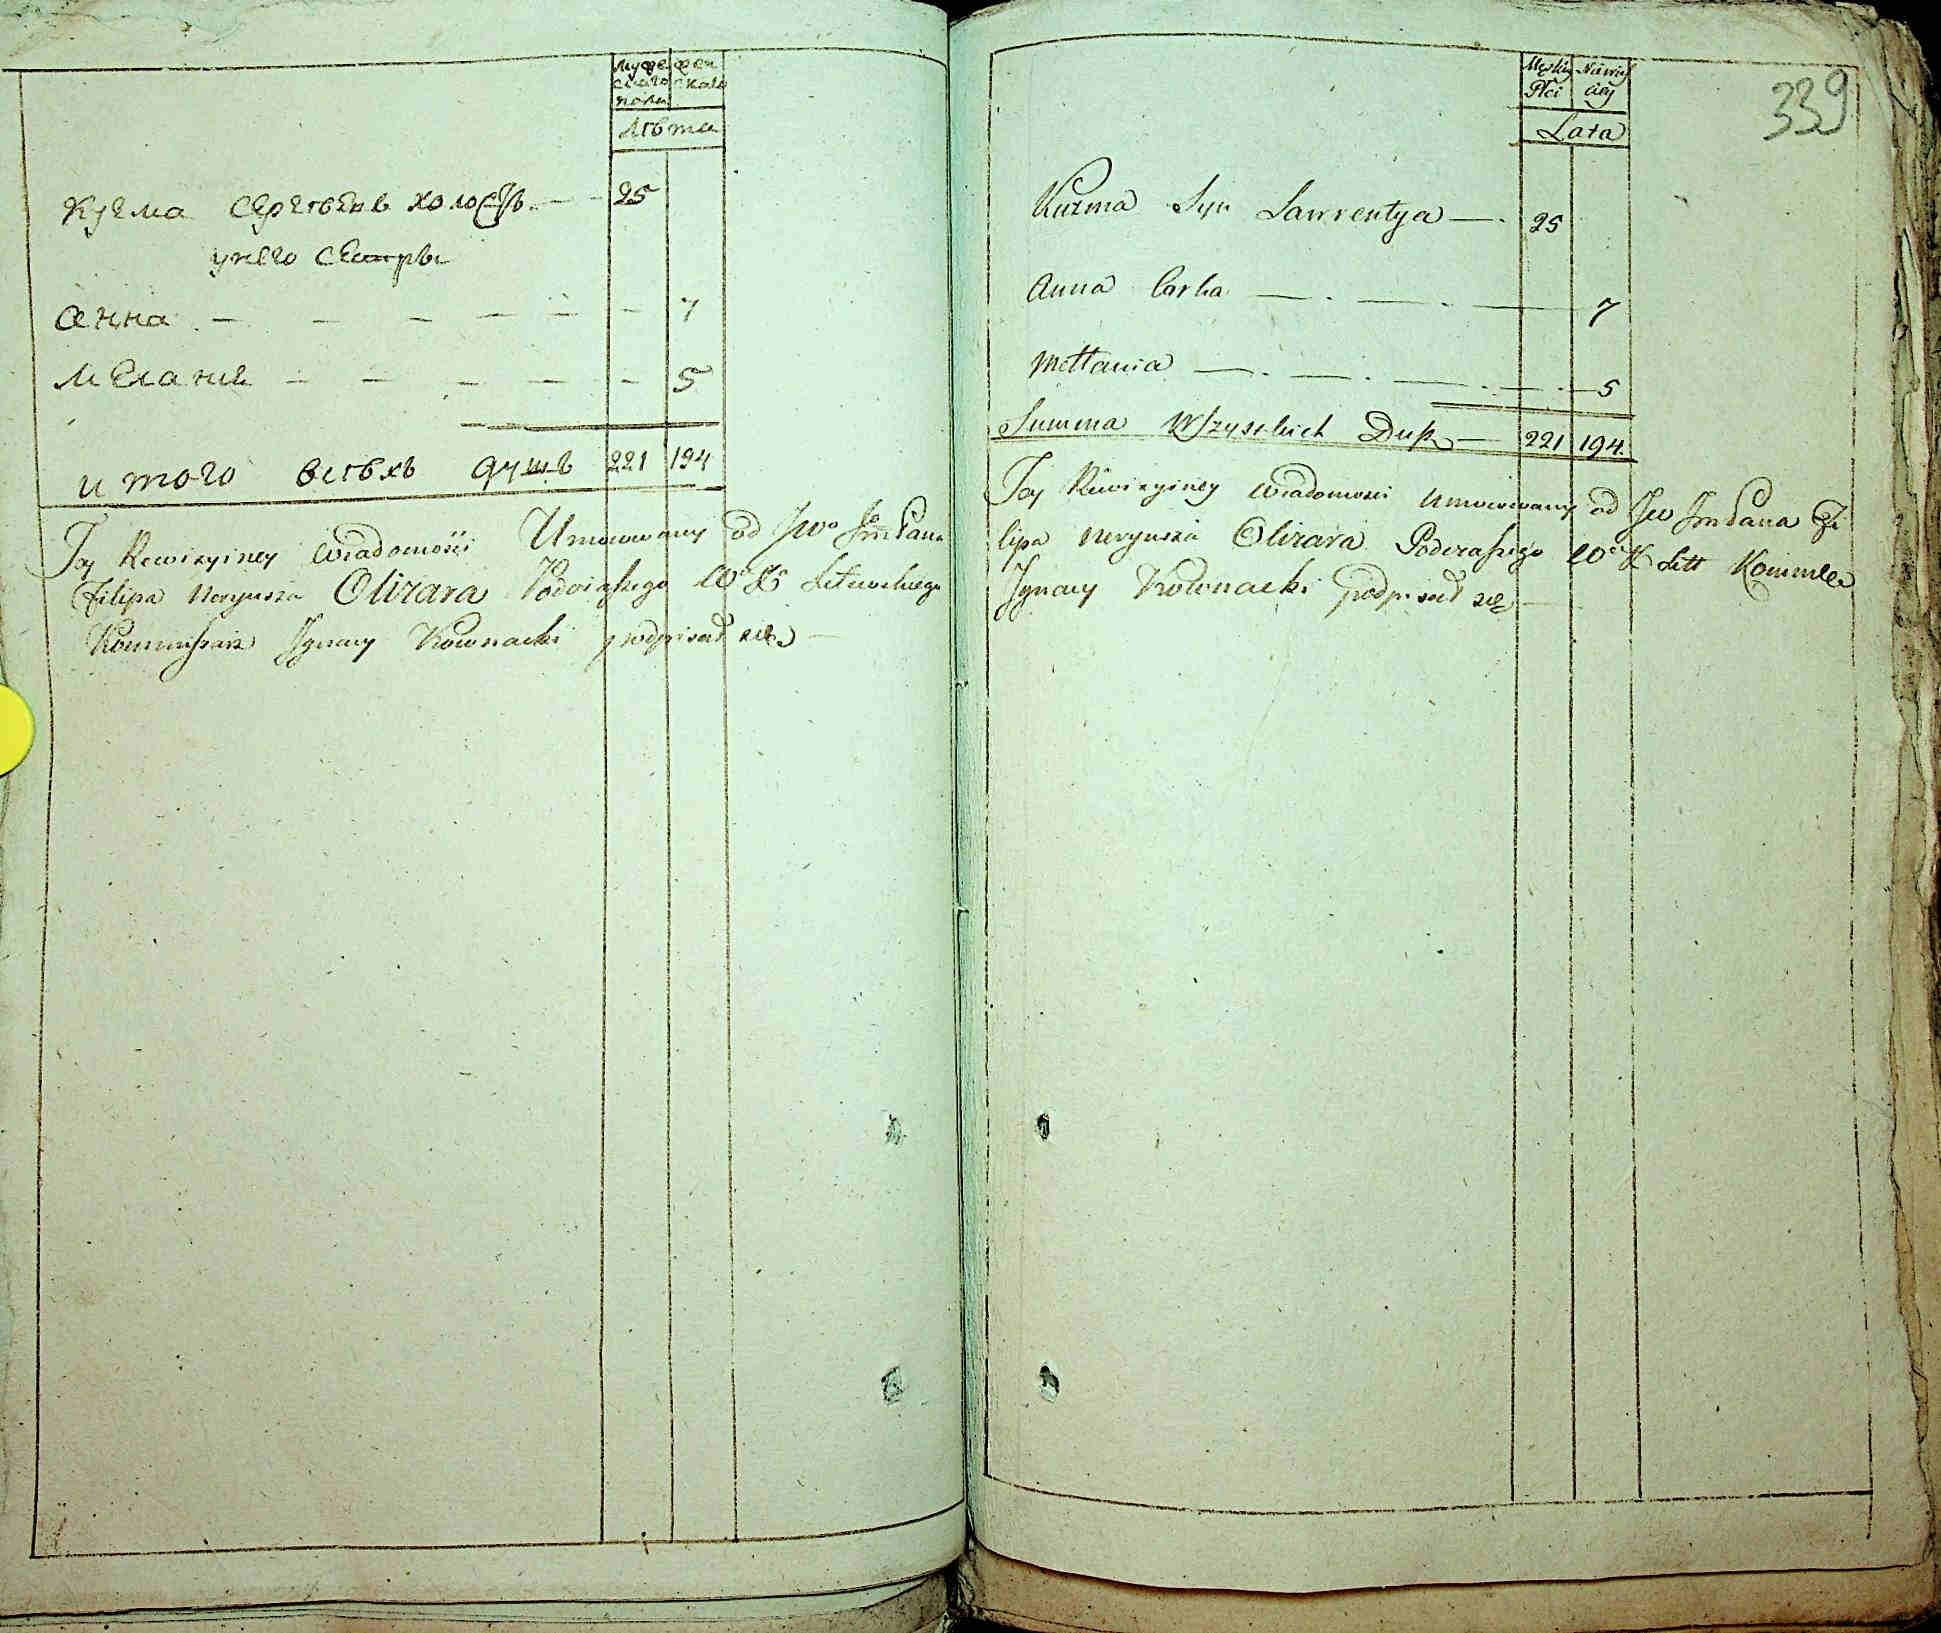 мужескаго пола женскаго
Лѣта
Кузма Сергѣевъ холостъ — 25
у него сестры
Анна — 7
Мелания — 5
итого всѣхъ душъ 221 194
Tey Rewizyiney Wiadomości Umocowany od JWo Jmć Pana
Filipa Neryusza Olizara Podczaszego Wo Xo Litewskiego
Kommissarz Ignacy Kownacki podpisał się —
339
Męskiey Płci
Lata
Kuzma Syn Lawrentya — 25
Anna Corka — 7
Mełłania — 5
Summa Wszystkich Dusz — 221 194
Tey Rewizyiney Wiadomości Umocowany od JW Jm Pana Fi
lipa Neryusza Olizara Podczaszego Wo X Litt
Ignacy Kownacki podpisał się —